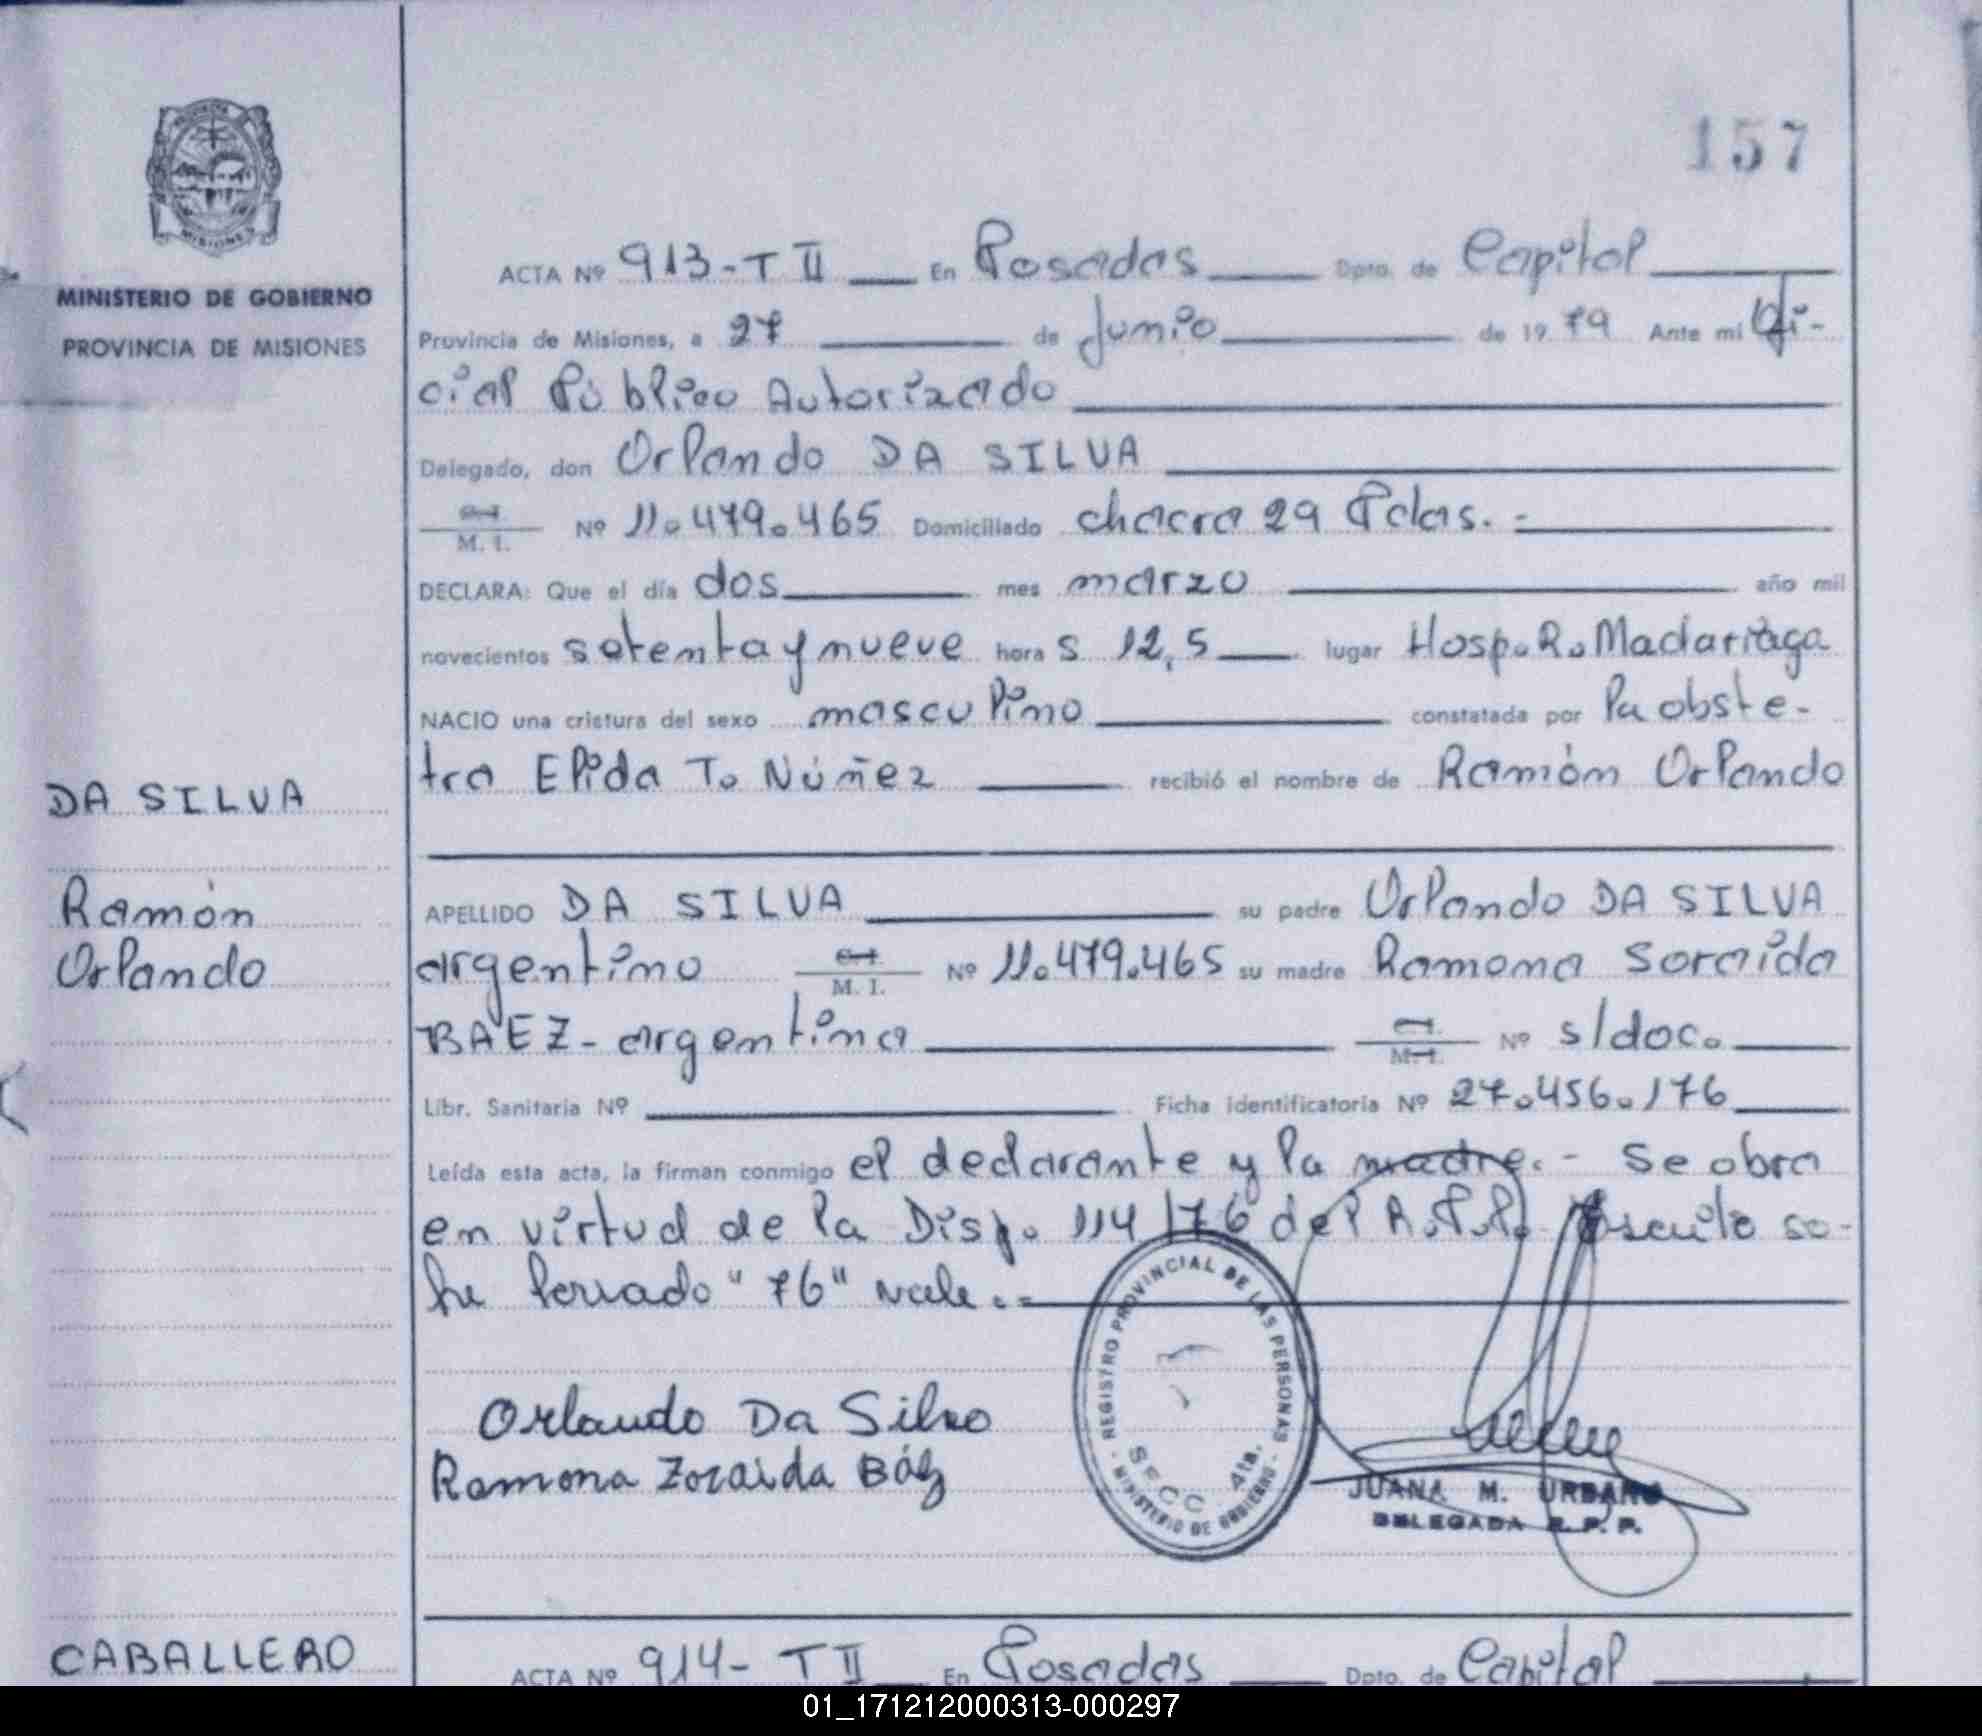 157
MINISTERIO DE GOBIERNO
PROVINCIA DE MISIONES
ACTA Nº 913-T II En Posadas Dpto. de Capital
Provincia de Misiones, a 27 de Junio de 1979 Ante mi Ofi-
cial Público Autorizado
Delegado, don Orlando DA SILVA
C.I. M. I. Nº 11.479.465 Domiciliado chacra 29 Pdas.-
DECLARA: Que el día dos mes marzo año mil
novecientos setenta y nueve hora s 12,5 lugar Hosp. R. Madariaga
NACIO una criatura del sexo masculino constatada por la obste-
tra Elida T. Núñez recibió el nombre de Ramón Orlando
DA SILVA
Ramón
Orlando
APELLIDO DA SILVA su padre Orlando DA SILVA
argentino C.I. M. I. Nº 11.479.465 su madre Ramona Soraida
BAEZ - argentina C.I. M.I. Nº s/doc.
Libr. Sanitaria Nº Ficha identificatoria Nº 27.456.176
Leída esta acta, la firman conmigo el declarante y la madre.- Se obra
en virtud de la Disp. 114/76 del R.P.P. Escrito so-
bre borrado "76" vale.-
Orlando Da Silva
Ramona Zoraida Báez
REGISTRO PROVINCIAL DE LAS PERSONAS
SECC. 4ta.
- MINISTERIO DE GOBIERNO -
JUANA M. URBANO
DELEGADA R. P. P.
CABALLERO
ACTA Nº 914- T II En Posadas Dpto. de Capital
01_171212000313-000297